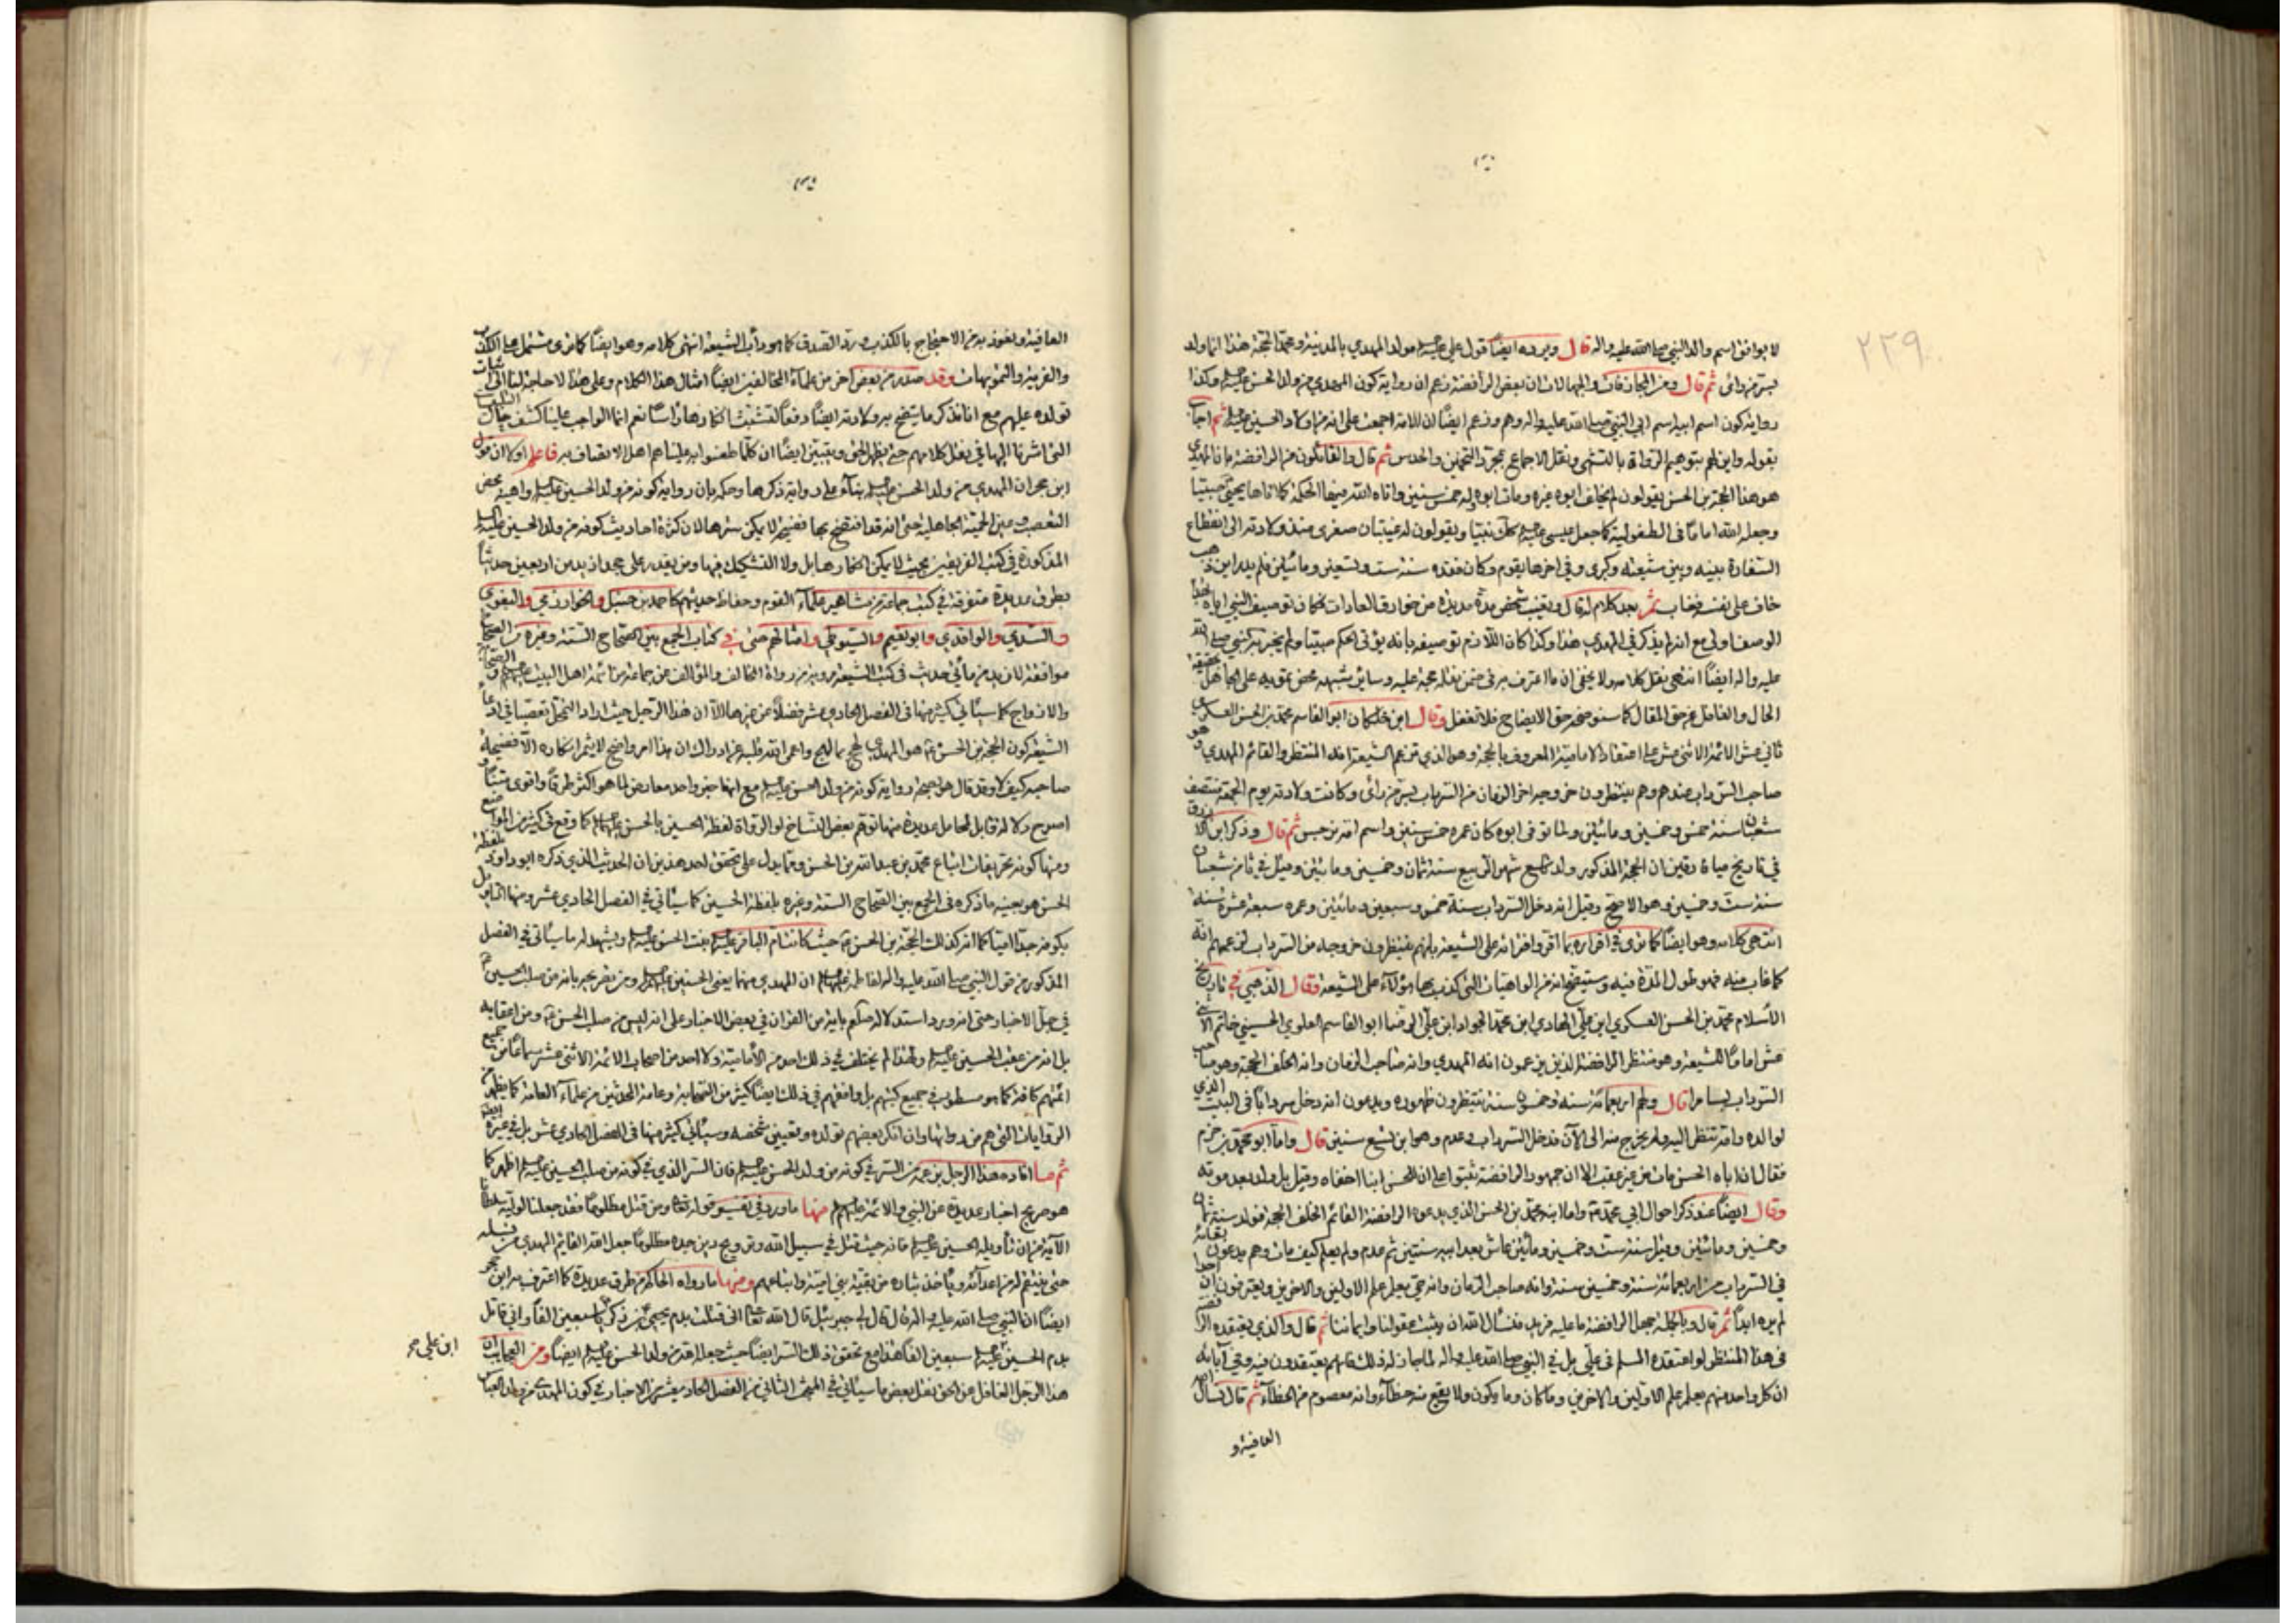 ٢٣٩
لا يوافق اسم والد النبي صلى الله عليه واله قال ويرده ايضاً قول علي مولد المهدي بالمدينة ومحمد الحجة هذا انما ولد
بسر من رائ ثم قال ومن المجازفات والجهالات ان بعض الرافضة زعم ان رواية كون المهدي من ولد الحسن وكذا
رواية كون اسم ابيه اسم ابي النبي صلى الله عليه واله وهم وزعم ايضاً ان الامة اجمعت على انه من اولاد الحسين ثم اجاب
بقوله واين لهم بتوهيم الرواة بالتشهي ونقل الاجماع بمجرد التخمين والحدس ثم قال والقائلون من الرافضة بان المهدي
هو هذا الحجة بن الحسن يقولون لم يخلف ابوه غيره ومات ابوه وله خمس سنين واتاه الله فيها الحكمة كما اتاها يحيى صبيا
وجعله الله اماماً في الطفولية كما جعل عيسى كذلك نبيا ويقولون له غيبتان صغرى منذ ولادته الى انقطاع
السفارة بينه وبين شيعته وكبرى وفي اخرها يقوم وكان فقده سنة ست وتسعين ومائتين فلم يدر اين ذهب
خاف على نفسه فغاب ثم بعد كلام له قال وتغيب شخص مدة مديدة من خوارق العادات فكان توصيف النبي اياه بهذا
الوصف اولى مع انه لم يذكر في المهدي هذا وكذا كان اللازم توصيفه بانه يؤتى الحكم صبيا ولم يخبر به النبي صلى الله
عليه واله ايضاً انتهى نقل كلامه ولا يخفى ان ما اعترف به في ضمن نقله حجة عليه وسائر شبهه محض تمويه على الجاهل بحقيقة
الحال والغافل عن حق المقال كما سنوضحه حق الايضاح فلا تغفل وقال ابن خلكان ابو القاسم محمد بن الحسن العسكري
ثاني عشر الائمة الاثني عشر على اعتقاد الامامية المعروف بالحجة وهو الذي تزعم الشيعة انه المنتظر والقائم المهدي وهو
صاحب السرداب عندهم وهم ينتظرون خروجه اخر الزمان من السرداب بسر من رأى وكانت ولادته يوم الجمعة منتصف
شعبان سنة خمس وخمسين ومائتين ولما توفي ابوه كان عمره خمس سنين واسم امه نرجس ثم قال وذكر ابن الازرق
في تاريخ ميافارقين ان الحجة المذكور ولد تاسع شهر ربيع سنة ثمان وخمسين ومائتين وقيل في ثامن شعبان
سنة ست وخمسين وهو الاصح وقيل انه دخل السرداب سنة خمس وسبعين ومائتين وعمره سبعة عشر سنة
انتهى كلامه وهو ايضاً كما ترى في اقراره بما اقر وافترائه على الشيعة بانهم ينتظرون خروجه من السرداب لزعمهم انه
كما غاب منه فهو طول المدة فيه وستيضح انه من الواهيات التي كذب بها هؤلاء على الشيعة وقال الذهبي في تاريخ
الاسلام محمد بن الحسن العسكري ابن علي الهادي ابن محمد الجواد ابن علي الرضا ابو القاسم العلوي الحسيني خاتم الاثني
عشر اماماً للشيعة وهو منتظر الرافضة الذين يزعمون انه المهدي وانه صاحب الزمان وانه الخلف الحجة وهو صاحب
السرداب بسامرا قال ولهم اربعمائة سنة وخمسون سنة ينتظرون ظهوره ويدعون انه دخل سرداباً في البيت الذي
لوالده وامه تنتظر اليه ولم يخرج منه الى الآن فدخل السرداب وعدم وهو ابن تسع سنين قال واما ابو محمد بن حزم
فقال ان اباه الحسن مات من غير عقب الا ان جمهور الرافضة ثبتوا على ان للحسن ابنا اخفاه وقيل بل ولد بعد موته
وقال ايضاً عند ذكر احوال ابي محمد واما ابنه محمد بن الحسن الذي يدعوه الرافضة القائم الخلف الحجة فولد سنة ثمان
وخمسين ومائتين وقيل سنة ست وخمسين ومائتين عاش بعد ابيه سنتين ثم عدم ولم يعلم كيف مات وهم يدعون بقائه
في السرداب من اربعمائة سنة وخمسين سنة وانه صاحب الزمان وانه حي يعلم علم الاولين والاخرين ويعترفون ان احدا
لم يره ابداً ثم قال وبالجملة جهل الرافضة ما عليه مزيد فنسأل الله ان يثبت عقولنا وايماننا ثم قال والذي يعتقده الرافضة
في هذا المنتظر لو اعتقده المسلم في علي بل في النبي صلى الله عليه واله لما جاز له ذلك فانهم يعتقدون فيه وفي آبائه
ان كل واحد منهم يعلم علم الاولين والاخرين وما كان وما يكون ولا يقع منه خطاء وانه معصوم من الخطاء ثم قال نسأل الله
العافية و
العافية ونعوذ به من الاحتجاج بالكذب ورد الصدق كما هو دأب الشيعة انتهى كلامه وهو ايضاً كما ترى مشتمل على الكذب
والفرية والتمويهات وقد صدر من بعض اخر من علماء المخالفين ايضاً امثال هذا الكلام وعلى هذا لا حاجة لنا الى اثبات
تولده عليهم مع انا نذكر ما يتضح به ولادته ايضاً دفعاً لتشبث انكارها راساً نعم انما الواجب علينا كشف حال
التي اشرنا اليها في نقل كلامهم حتى يظهر الحق ويتبين ايضاً ان كلما طعنوا به علينا هم اهل الاتصاف به فاعلم اولا ان قول
ابن حجر ان المهدي من ولد الحسن بناء على رواية ذكرها وحكمه بان رواية كونه من ولد الحسين واهية محض
التعصب وعين الحمية الجاهلية حتى انه قد افتضح بها فضيحة لا يمكن سترها لان كثرة احاديث كونه من ولد الحسين
المذكورة في كتب الفريقين بحيث لا يمكن انكارها بل ولا التشكيك فيها ومن يقدر على جحد ازيد من اربعين حديثاً
بطرق عديدة متفرقة في كتب جماعة من مشاهير علماء القوم وحفاظ حديثهم كاحمد بن حنبل والخوارزمي والبغوي
والسدي والواقدي وابو نعيم والسيوطي وامثالهم حتى في كتاب الجمع بين الصحاح الستة وغيره من الصحاح
موافقة لازيد من مائتي حديث في كتب الشيعة مروية من رواة المخالف والمؤالف عن جماعة من ائمة اهل البيت والصحابة
والازواج كما سيأتي كثير منها في الفصل الحادي عشر فضلاً عن غيرها الا ان هذا الرجل حيث اراد التمحل تعصبا في ادعاء
الشيعة كون الحجة بن الحسن هو المهدي لهج بما لهج واعمى الله قلبه عن ادراك ان هذا امر واضح لا يثمر انكاره الا فضيحة
صاحبه كيف لا وقد قال هو بصحة رواية كونه من ولد الحسن مع انها خبر واحد معارض لما هو اكثر طرقا واقوى متناً و
اصرح دلالة قابل لمحامل عديدة منها توهم بعض النساخ او الرواة لفظة الحسين بالحسن كما وقع في كثير من المواضع
ومنها كونه تحريفات اتباع محمد بن عبد الله بن الحسن ومما يدل على تحقق احد هذين ان الحديث الذي ذكره ابو داود بلفظة
الحسن هو بعينه ما ذكره في الجمع بين الصحاح الستة وغيره بلفظة الحسين كما سيأتي في الفصل الحادي عشر ومنها التاويل
بكونه جدا اميا كما انه كذلك الحجة بن الحسن حيث كانت ام الباقر بنت الحسن ويشهد له ما سيأتي في الفصل
المذكور من قول النبي صلى الله عليه واله لفاطمة ان المهدي منهما يعني الحسنين ومن تصريحه بانه من صلب الحسين
في جل الاخبار حتى انه ورد استدلاله صلعم باية من القران في بعض الاخبار على انه ليس من صلب الحسن ومن اعقابه
بل انه من عقب الحسين ولهذا لم يختلف في ذلك احد من الأمامية ولا احد من اصحاب الائمة الاثني عشر سماعا من جميع
ائمتهم كافة كما هو مسطور في جميع كتبهم بل وافقهم في ذلك ايضاً كثير من الصحابة وعامة المحدثين من علماء العامة كما يظهر من
الروايات التي هم من رواتها وان انكر بعضهم تولده وتعيين شخصه وسيأتي كثير منها في الفصل الحادي عشر بل في غيره ايضا
ثم ما افاده هذا الرجل من السر في كونه من ولد الحسن فان السر الذي في كونه من صلب الحسين اظهر كما
هو صريح اخبار عديدة عن النبي والائمة منها ما ورد في تفسير قوله تعالى ومن قتل مظلوماً فقد جعلنا لوليه سلطانا
الآية من ان تأويله الحسين فانه حيث قتل في سبيل الله وترويج دين جده مظلوماً جعل الله القايم المهدي من نسله
حتى ينتقم له من اعدائه ويأخذ بثاره من بقية بني امية واتباعهم ومنها ما رواه الحاكم من طرق عديدة كما اعترف به ابن حجر
ايضاً ان النبي صلى الله عليه واله قال قال لي جبرئيل قال الله تعالى اني قتلت بدم يحيى بن زكريا سبعين الفاً واني قاتل
بدم الحسين سبعين الفاً هذا مع تحقق ذلك السر ايضاً حيث جعل الله قدر من ولد الحسن ايضاً ومن العجايب ان
ابن علي
هذا الرجل الغافل عن الحق نقل بعض ما سيأتي في المبحث الثاني من الفصل الحادي عشر من الاخبار في كون المهدي من ولد العباس